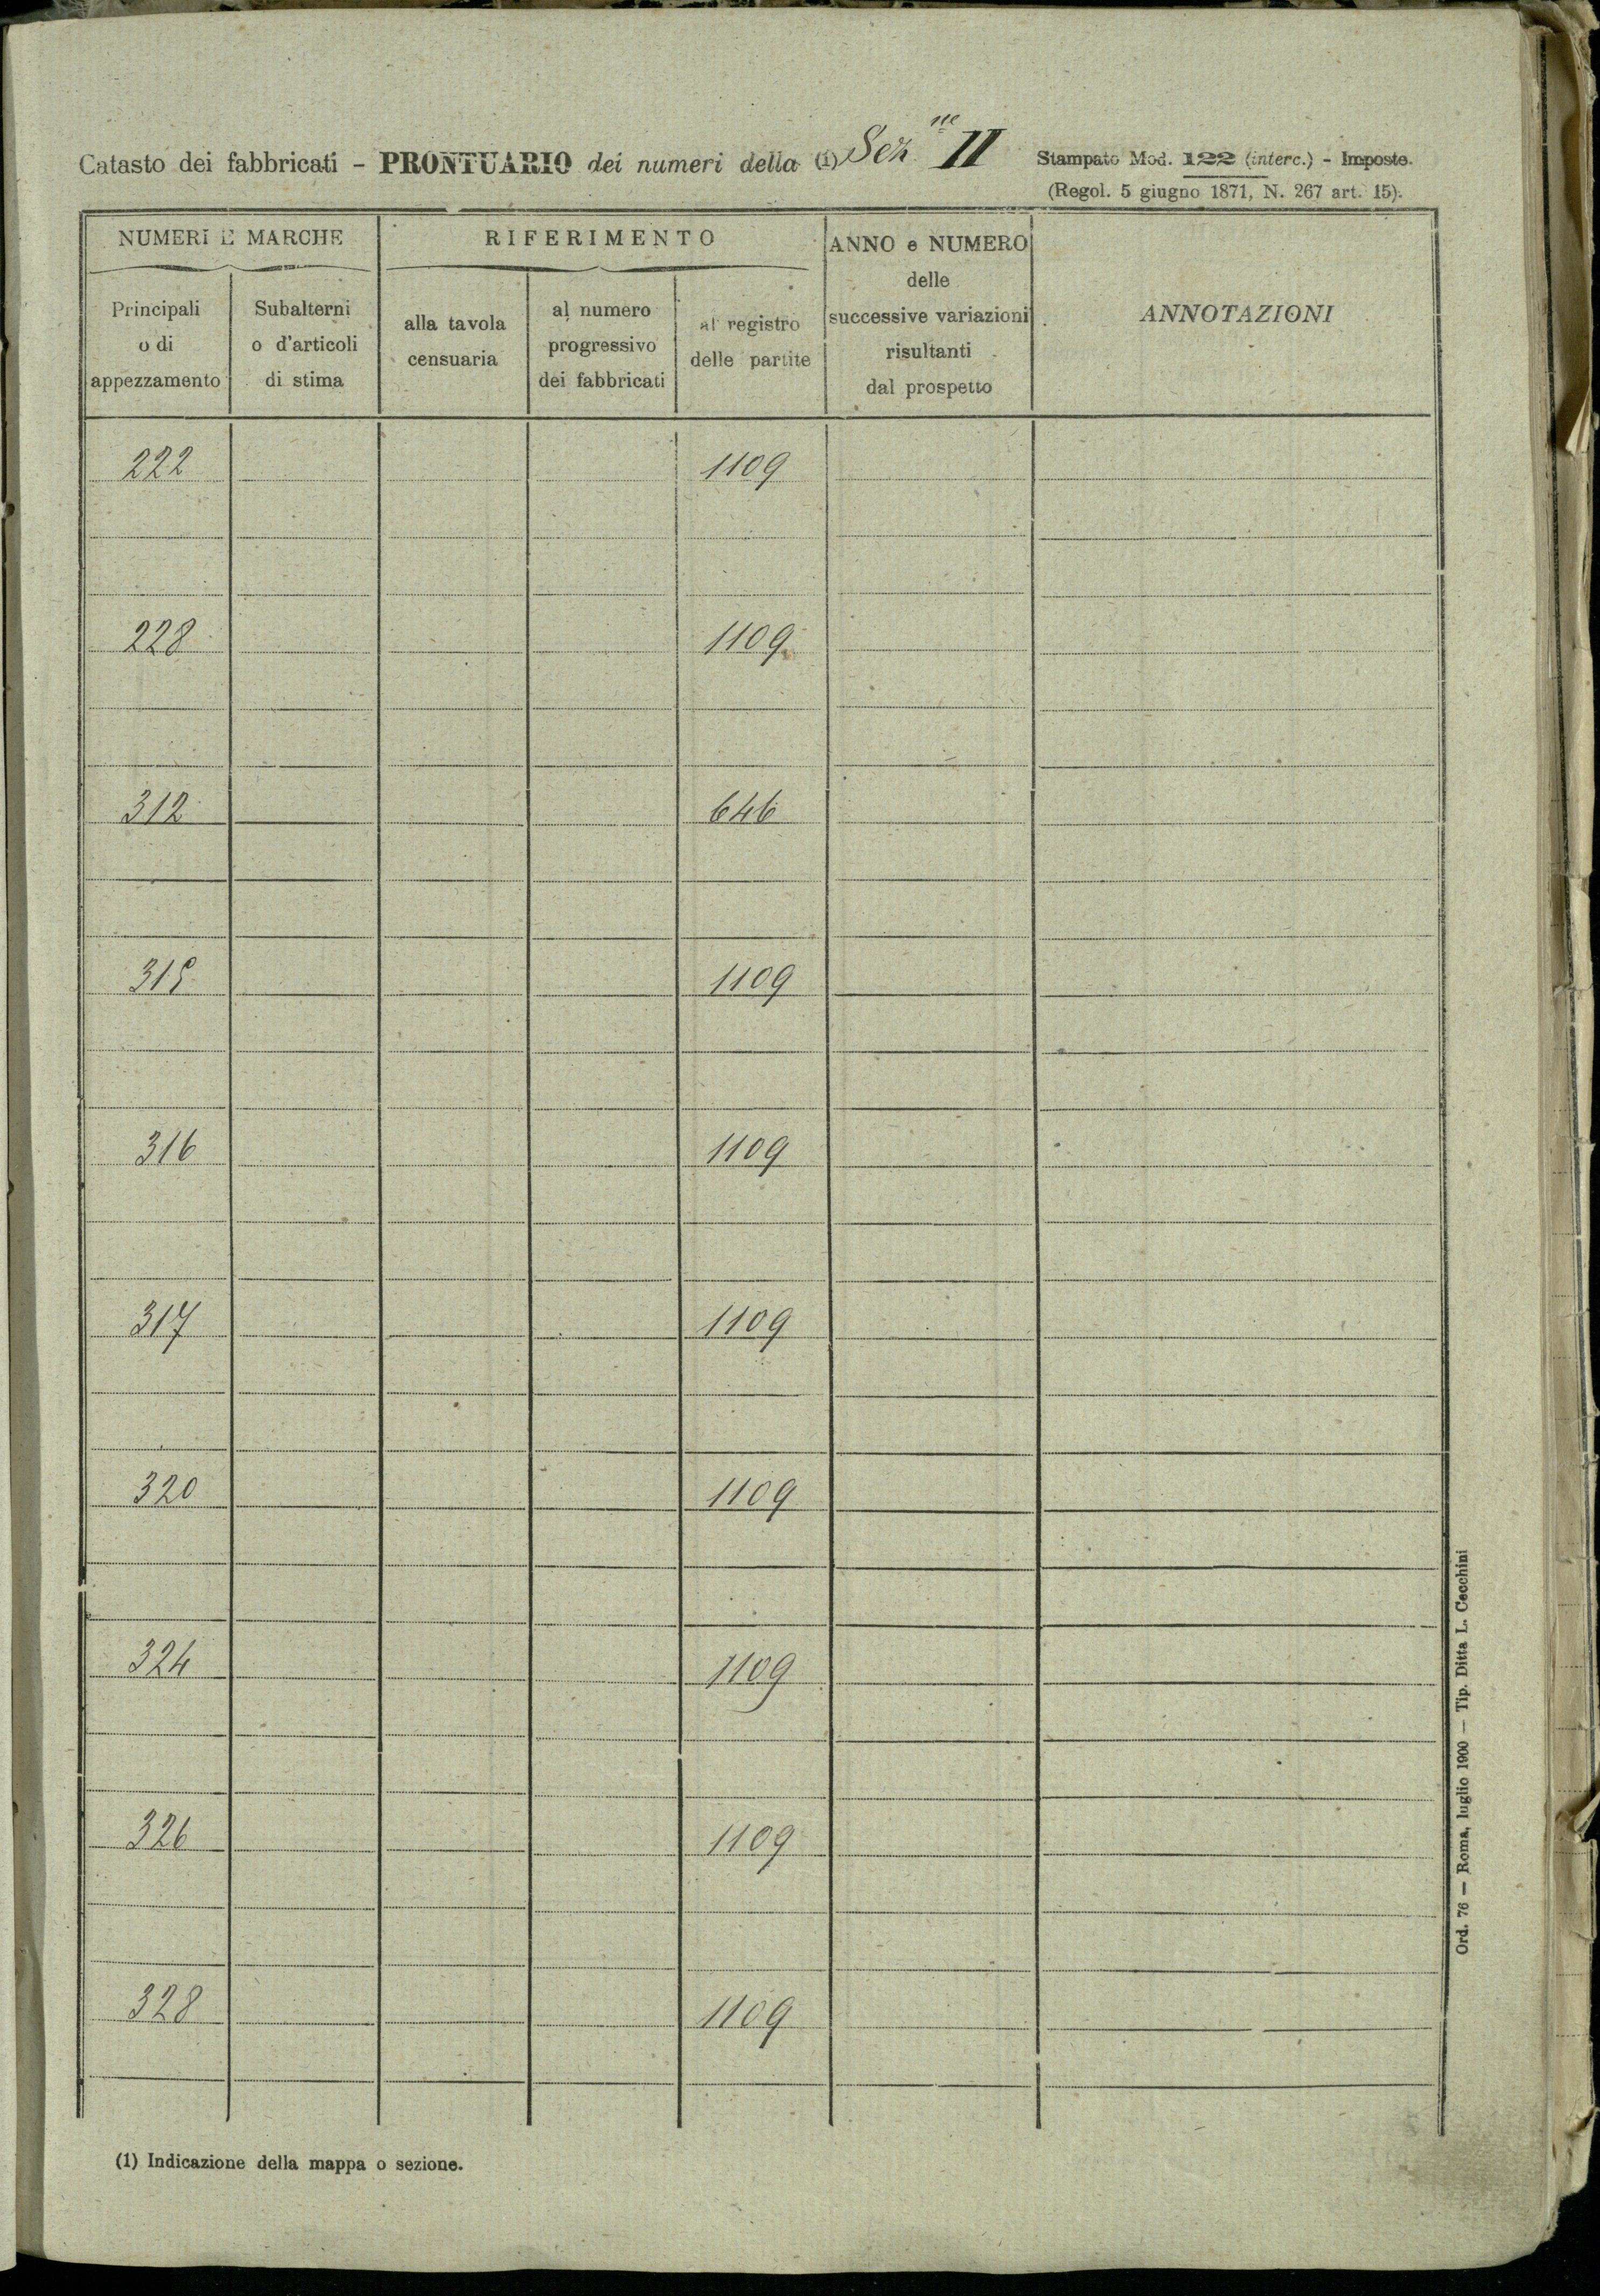 Catasto dei fabbricati - PRONTUARIO dei numeri della (1) Sez.ne II
Stampato Mod. 122 (interc.) - Imposte.
(Regol. 5 giugno 1871, N. 267 art. 15).
NUMERI E MARCHE
RIFERIMENTO
ANNO e NUMERO
delle
successive variazioni
risultanti
dal prospetto
ANNOTAZIONI
Principali
o di
appezzamento
Subalterni
o d'articoli
di stima
alla tavola
censuaria
al numero
progressivo
dei fabbricati
al registro
delle partite
222 1109
228 1109
312 646
315 1109
316 1109
317 1109
320 1109
324 1109
326 1109
328 1109
(1) Indicazione della mappa o sezione.
Ord. 76 — Roma, luglio 1900 — Tip. Ditta L. Cecchini